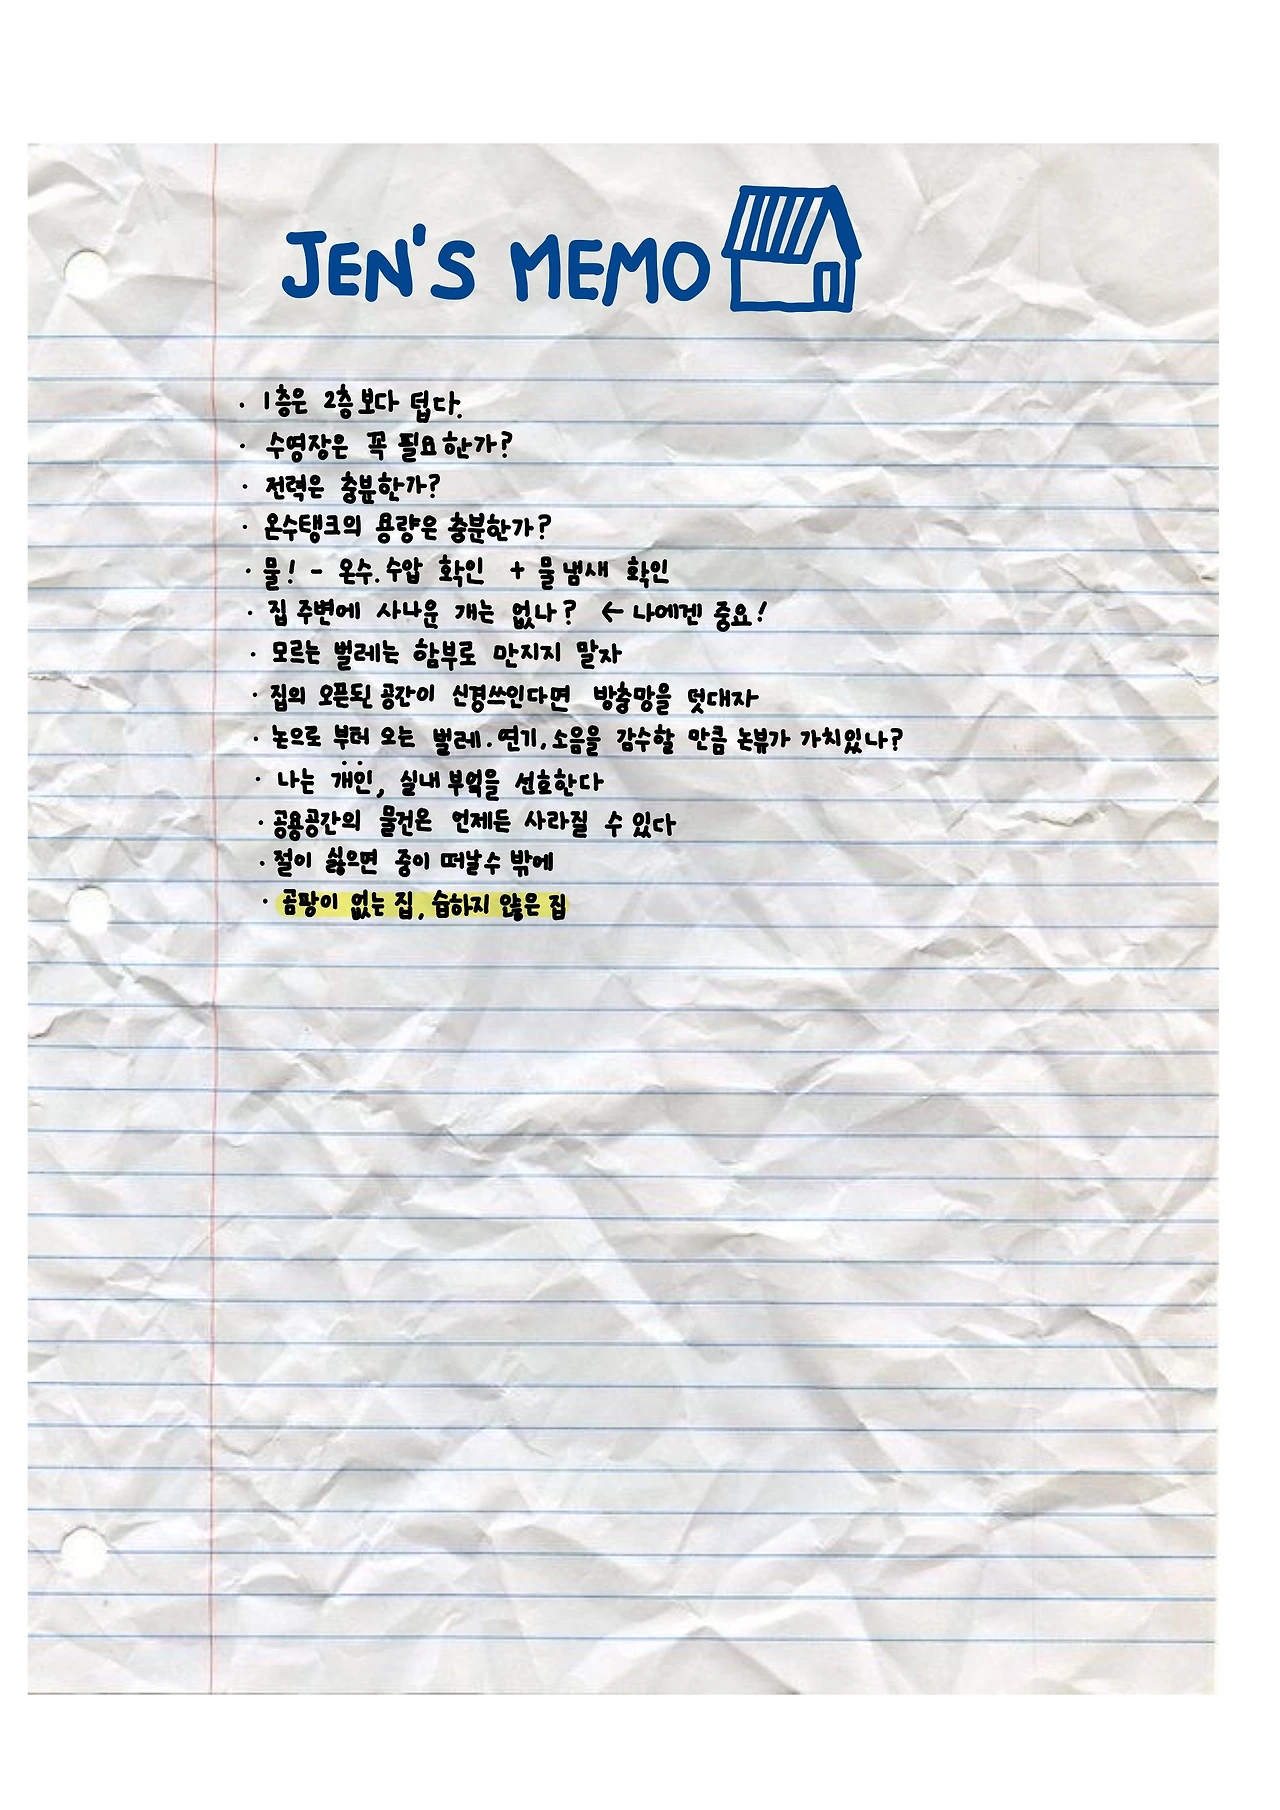 JEN'S MEMO
· 1층은 2층보다 덥다.
· 수영장은 꼭 필요한가?
· 전력은 충분한가?
· 온수탱크의 용량은 충분한가?
· 물! - 온수.수압 확인 + 물냄새 확인
· 집 주변에 사나운 개는 없나? ← 나에겐 중요!
· 모르는 벌레는 함부로 만지지 말자
· 집의 오픈된 공간이 신경쓰인다면 방충망을 덧대자
· 논으로 부터 오는 벌레.연기,소음을 감수할 만큼 논뷰가 가치있나?
· 나는 개인, 실내 부엌을 선호한다
· 공용공간의 물건은 언제든 사라질 수 있다
· 절이 싫으면 중이 떠날수 밖에
· 곰팡이 없는 집, 습하지 않은 집